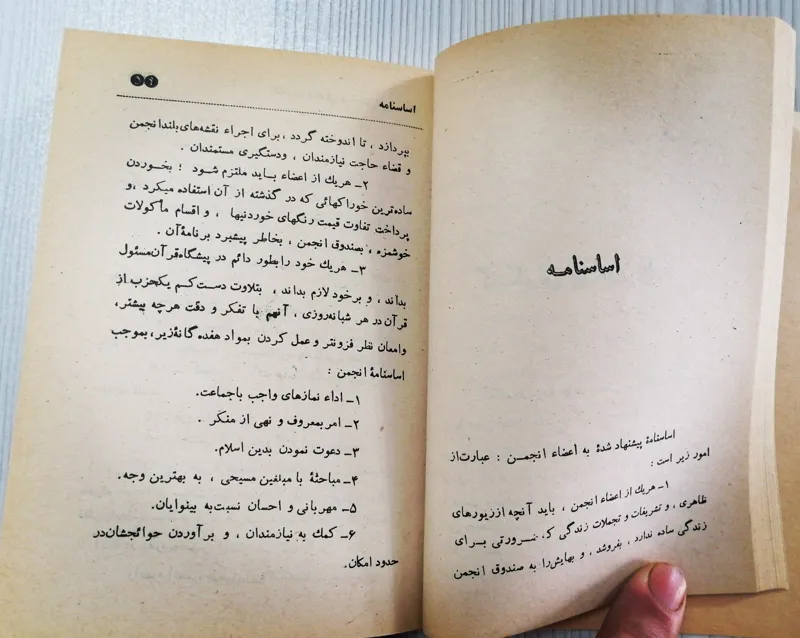 اساسنامه
اساسنامهٔ پیشنهاد شدهٔ به اعضاء انجمن : عبارت‌از
امور زیر است :
۱ـ هریك از اعضاء انجمن ، باید آنچه اززیورهای
ظاهری ، و تشریفات و تجملات زندگی که ضرورتی برای
زندگی ساده ندارد ، بفروشد ، و بهایش‌را به صندوق انجمن
اساسنامه
بپردازد ، تا اندوخته گردد ، برای اجراء نقشه‌های‌بلندانجمن
و قضاء حاجت نیازمندان ، ودستگیری مستمندان .
۲ـ هریك از اعضاء بـاید ملتزم شـود ؛ بخـوردن
ساده‌ترین خوراکهائی که در گذشته از آن استفاده میکرد ،و
پرداخت تفاوت قیمت رنگهای خوردنیها ، و اقسام مأکولات
خوشمزه ، بصندوق انجمن ، بخاطر پیشبرد برنامهٔ‌آن .
۳ـ هریك خود رابطور دائم در پیشگاه‌قرآن‌مسئول
بداند ، و برخود لازم بداند ، بتلاوت دست‌کـم یکحزب از
قرآن‌در هر شبانه‌روزی ، آنهم با تفکر و دقت هرچه بیشتر،
وامعان نظر فزونتر و عمل کردن بمواد هفده گانهٔ‌زیر،بموجب
اساسنامهٔ انجمن :
۱ـ اداء نمازهای واجب باجماعت.
۲ـ امربمعروف و نهی از منکر .
۳ـ دعوت نمودن بدین اسلام.
۴ـ مباحثهٔ با مبلغین مسیحی ، به بهترین وجه.
۵ـ مهربانی و احسان نسبت‌به بینوایان.
۶ـ کمك به نیازمندان ، و برآوردن حوائجشان‌در
حدود امکان.